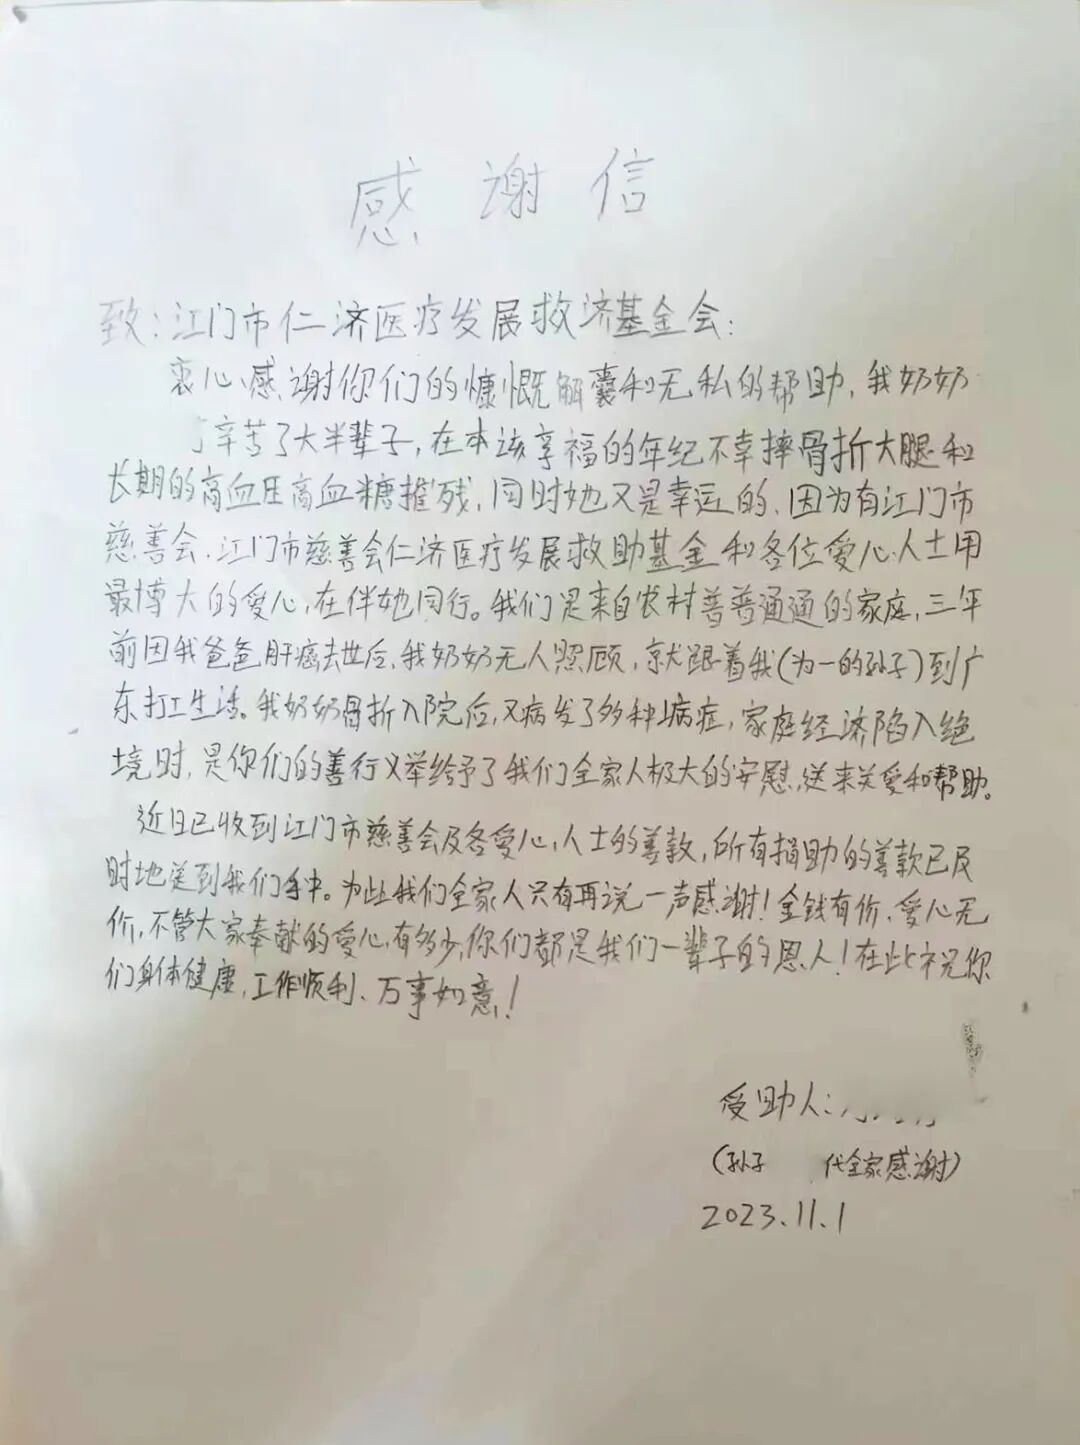 感谢信
致：江门市仁济医疗发展救济基金会：
衷心感谢你们的慷慨解囊和无私的帮助，我奶奶
辛苦了大半辈子，在本该享福的年纪不幸摔骨折大腿和
长期的高血压高血糖摧残，同时她又是幸运的，因为有江门市
慈善会．江门市慈善会仁济医疗发展救助基金和各位爱心人士用
最博大的爱心，在伴她同行。我们是来自农村普普通通的家庭，三年
前因我爸爸肝癌去世后，我奶奶无人照顾，就跟着我（为一的孙子）到广
东打工生活。我奶奶骨折入院后，又病发了多种病症，家庭经济陷入绝
境时，是你们的善行义举给予了我们全家人极大的安慰，送来关爱和帮助。
近日已收到江门市慈善会及各爱心人士的善款，所有捐助的善款已及
时地送到我们手中。为此我们全家人只有再说一声感谢！金钱有价，爱心无
价，不管大家奉献的爱心有多少，你们都是我们一辈子的恩人！在此祝你
们身体健康，工作顺利、万事如意！
受助人：
（孙子 代全家感谢）
2023.11.1